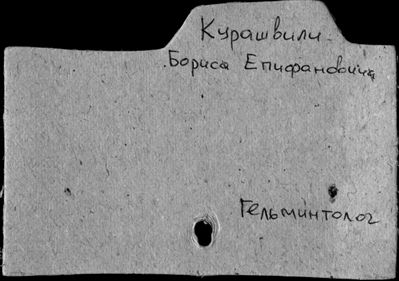 Курашвили
Бориса Епифановича
Гельминтолог